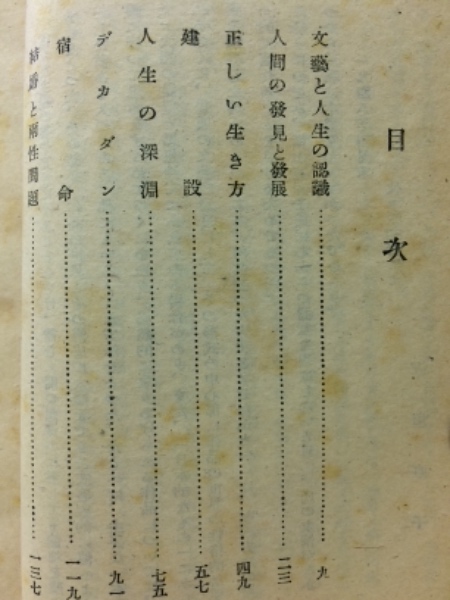 目次
文藝と人生の認識……九
人間の發見と發展……二三
正しい生き方……四九
建設……五七
人生の深淵……七五
デカダン……九一
宿命……一一九
結婚と兩性問題……一三七